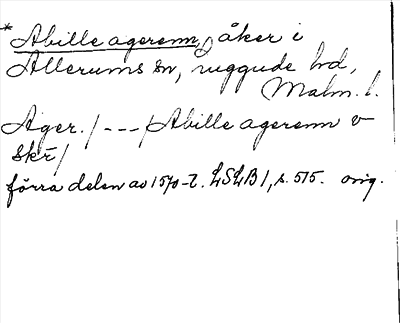 *Abille agerenn, åker i
Allerums sn, Luggude hd,
Malm. l.
Ager. / - - - / Abille agerenn v
skr /
förra delen av 1570-t. LSLB I, s. 515. orig.